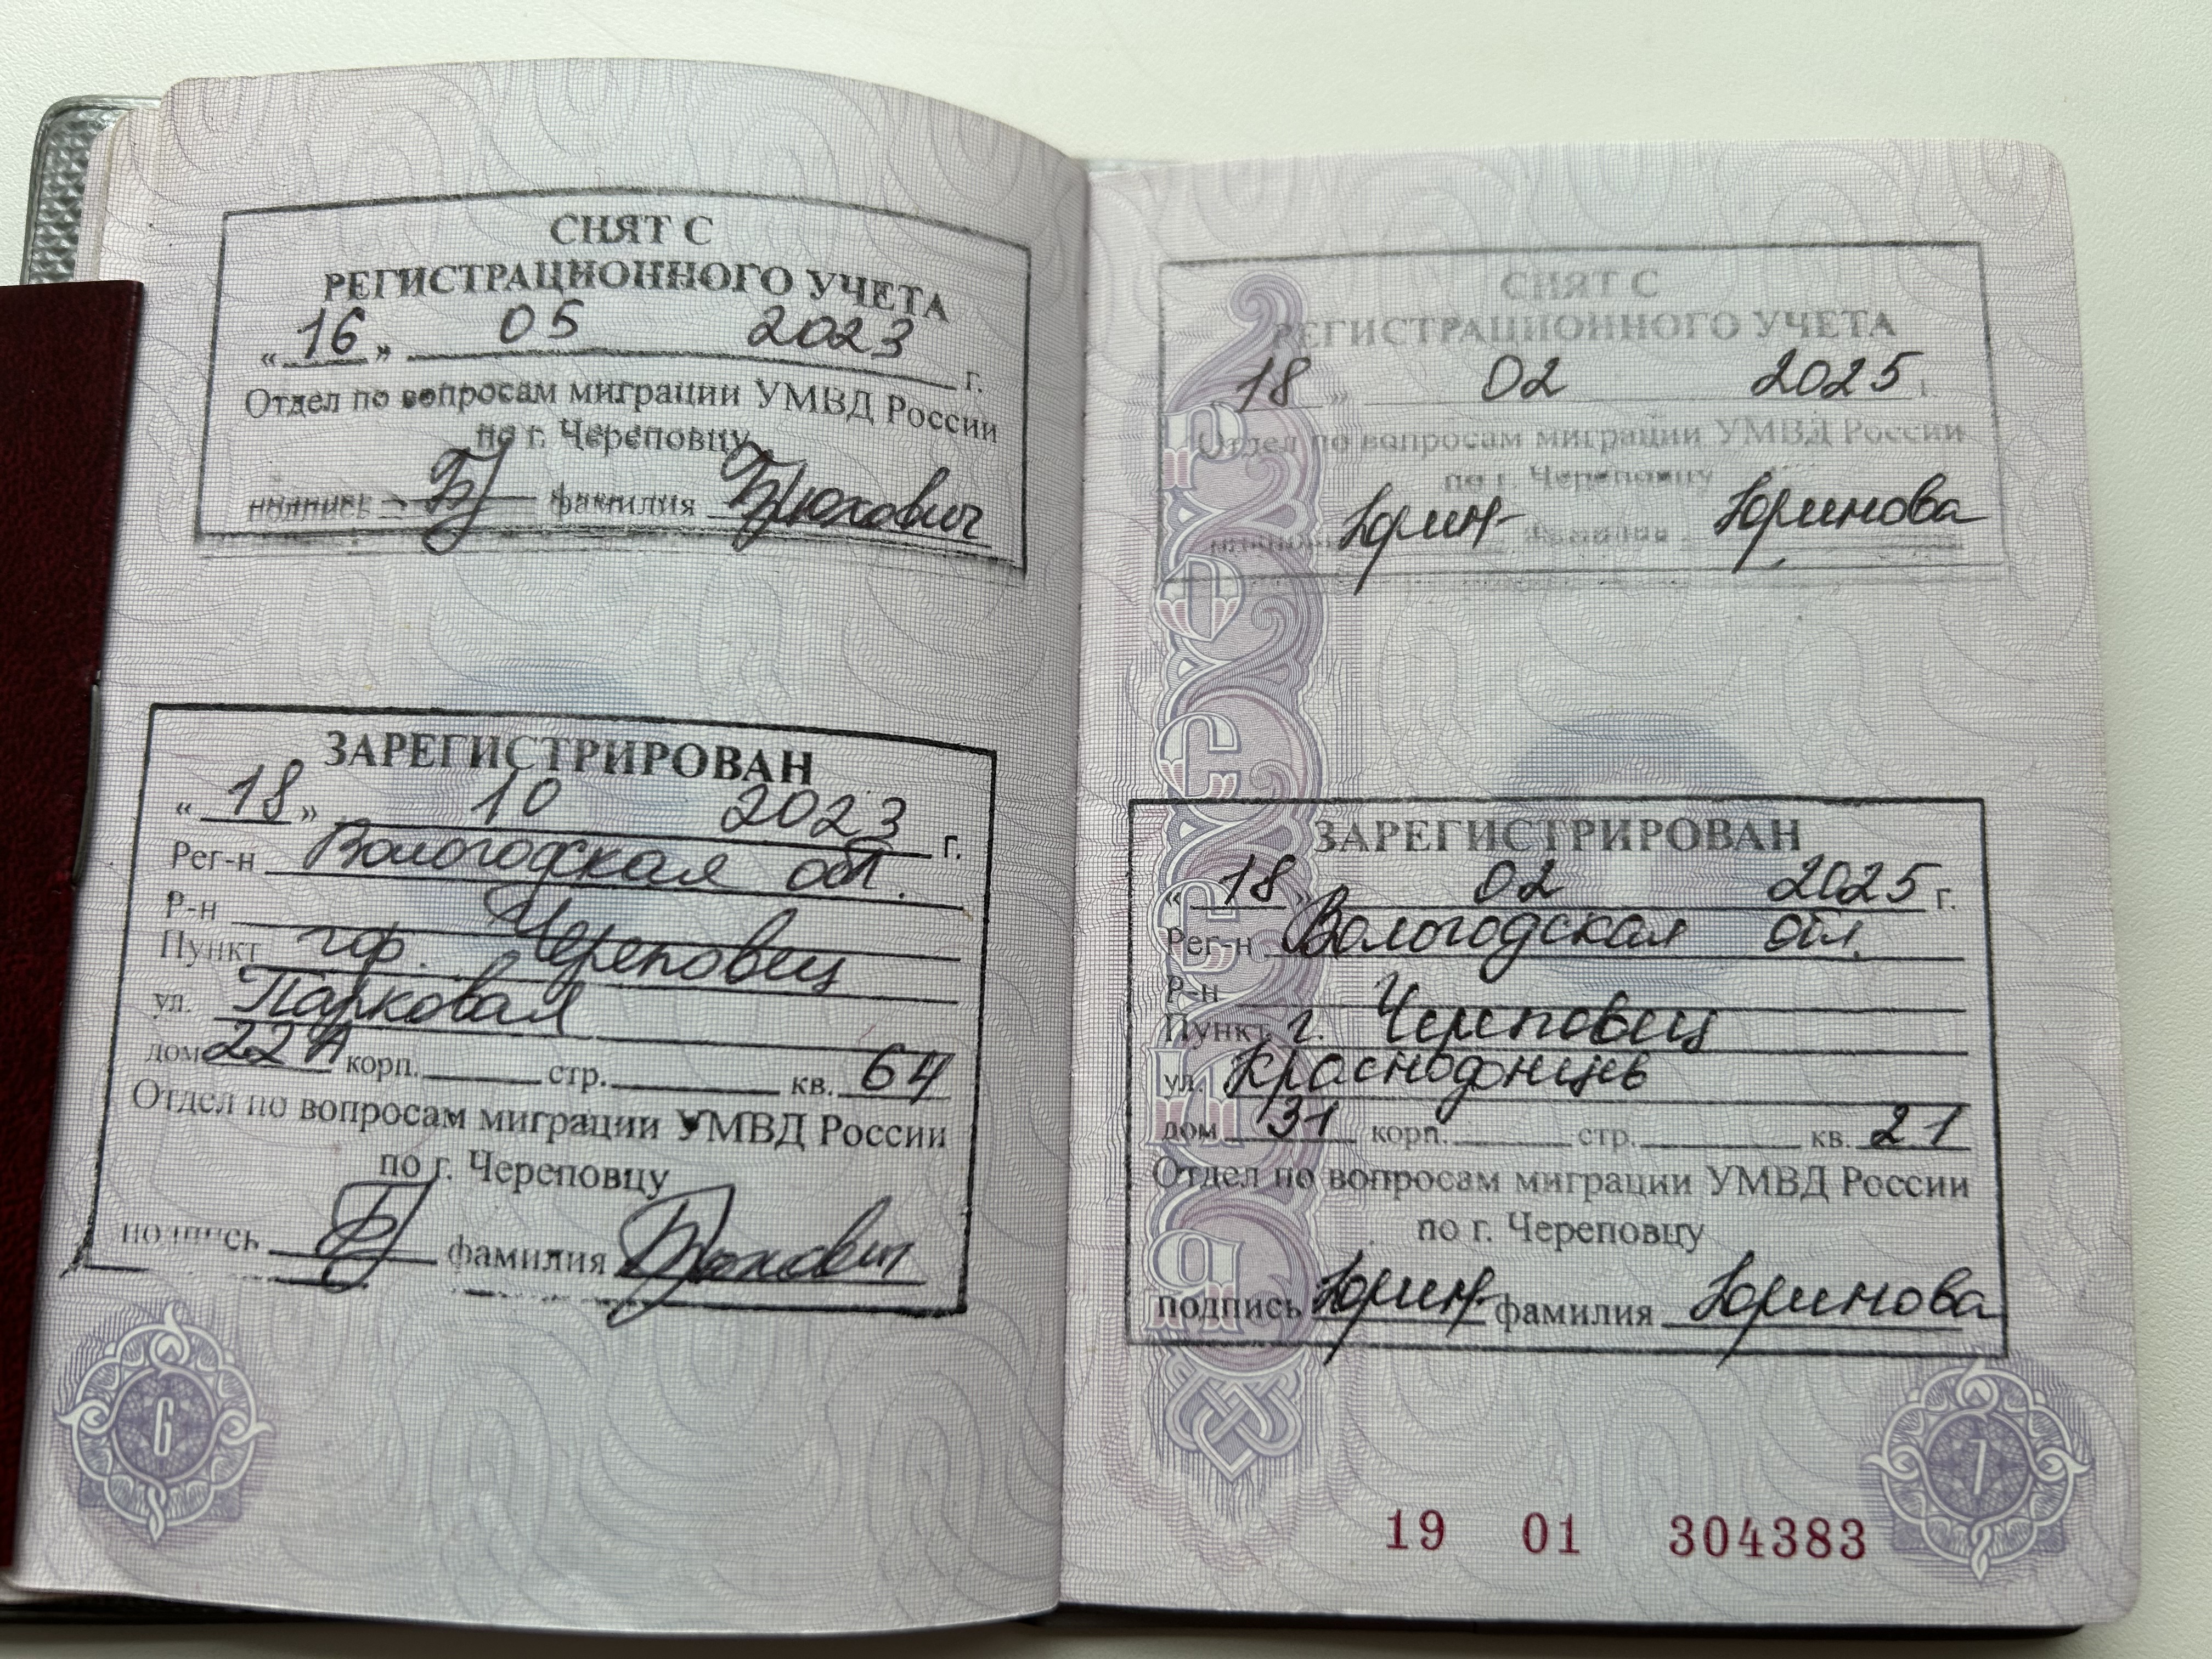 СНЯТ С
РЕГИСТРАЦИОННОГО УЧЕТА
«16» 05 2023 г.
Отдел по вопросам миграции УМВД России
по г. Череповцу
подпись фамилия Брюхович
ЗАРЕГИСТРИРОВАН
«18» 10 2023 г.
Рег-н Вологодская обл.
Р-н
Пункт гор. Череповец
ул. Парковая
дом 22А корп. стр. кв. 64
Отдел по вопросам миграции УМВД России
по г. Череповцу
подпись фамилия Брюхович
6
СНЯТ С
РЕГИСТРАЦИОННОГО УЧЕТА
18» 02 2025 г.
Отдел по вопросам миграции УМВД России
по г. Череповцу
Юрин фамилия Юринова
ЗАРЕГИСТРИРОВАН
«18» 02 2025 г.
Рег-н Вологодская обл.
Р-н
Пункт г. Череповец
ул. Краснодонцев
дом 31 корп. стр. кв. 21
Отдел по вопросам миграции УМВД России
по г. Череповцу
подпись Юрин фамилия Юринова
РОССИЯ
7
19 01 304383